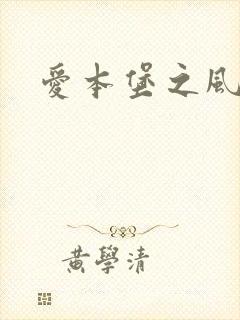 愛本堡之風
黃學清